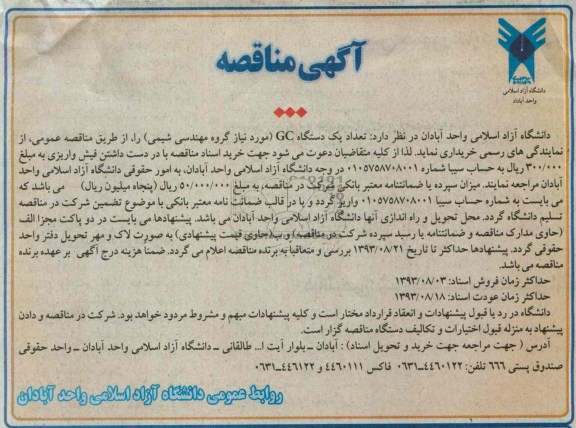 دانشگاه آزاد اسلامی
واحد آبادان
آگهی مناقصه
دانشگاه آزاد اسلامی واحد آبادان در نظر دارد: تعداد یک دستگاه GC (مورد نیاز گروه مهندسی شیمی) را، از طریق مناقصه عمومی، از
نمایندگی های رسمی خریداری نماید. لذا از کلیه متقاضیان دعوت می شود جهت خرید اسناد مناقصه با در دست داشتن فیش واریزی به مبلغ
۳۰۰/۰۰۰ ریال به حساب سیبا شماره ۰۱۰۵۷۵۸۷۰۸۰۰۱ در وجه دانشگاه آزاد اسلامی واحد آبادان، به امور حقوقی دانشگاه آزاد اسلامی واحد
آبادان مراجعه نمایند. میزان سپرده یا ضمانتنامه معتبر بانکی شرکت در مناقصه، به مبلغ ۵۰/۰۰۰/۰۰۰ ریال (پنجاه میلیون ریال) می باشد که
می بایست به شماره حساب سیبا ۰۱۰۵۷۵۸۷۰۸۰۰۱ واریز گردد و یا در قالب ضمانت نامه معتبر بانکی با موضوع تضمین شرکت در مناقصه
تسلیم دانشگاه گردد. محل تحویل و راه اندازی آنها دانشگاه آزاد اسلامی واحد آبادان می باشد. پیشنهادها می بایست در دو پاکت مجزا الف
(حاوی مدارک مناقصه و ضمانتنامه یا رسید سپرده شرکت در مناقصه) و ب (حاوی قیمت پیشنهادی) به صورت لاک و مهر تحویل دفتر واحد
حقوقی گردد. پیشنهادها حداکثر تا تاریخ ۱۳۹۳/۰۸/۲۱ بررسی و متعاقبا به برنده مناقصه اعلام می گردد. ضمنا هزینه درج آگهی بر عهده برنده
مناقصه می باشد.
حداکثر زمان فروش اسناد: ۱۳۹۳/۰۸/۰۳
حداکثر زمان عودت اسناد: ۱۳۹۳/۰۸/۱۸
دانشگاه در رد یا قبول پیشنهادات و انعقاد قرارداد مختار است و کلیه پیشنهادات مبهم و مشروط مردود خواهد بود. شرکت در مناقصه و دادن
پیشنهاد به منزله قبول اختیارات و تکالیف دستگاه مناقصه گزار است.
آدرس ( جهت مراجعه جهت خرید و تحویل اسناد) : آبادان ـ بلوار آیت ا... طالقانی ـ دانشگاه آزاد اسلامی واحد آبادان ـ واحد حقوقی
صندوق پستی ۶۶۶ تلفن: ۴۴۶۰۱۲۲-۰۶۳۱ فاکس ۴۴۶۰۱۱۱ و ۴۴۶۱۲۲-۰۶۳۱
روابط عمومی دانشگاه آزاد اسلامی واحد آبادان